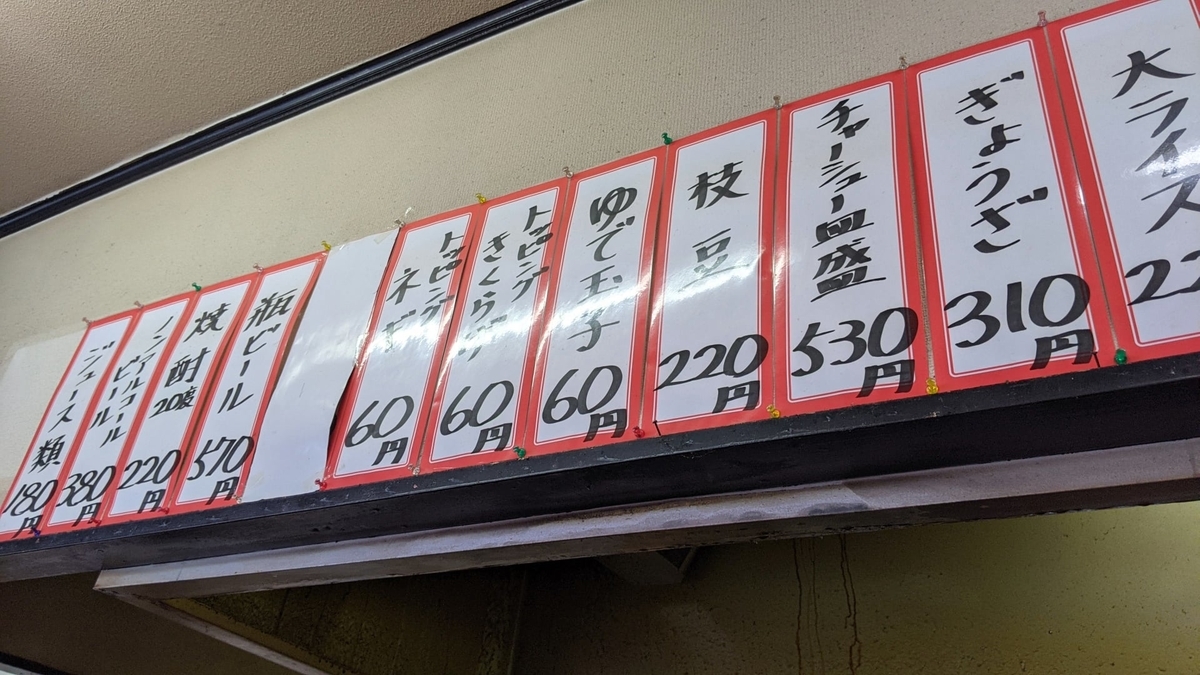 大ライス
ぎょうざ
310円
チャーシュー皿盛
530円
枝豆
220円
ゆで玉子
60円
トッピング
きくらげ
60円
トッピング
ネギ
60円
瓶ビール
570円
焼酎
20度
220円
ノンアルコール
ビール
380円
ジュース類
180円